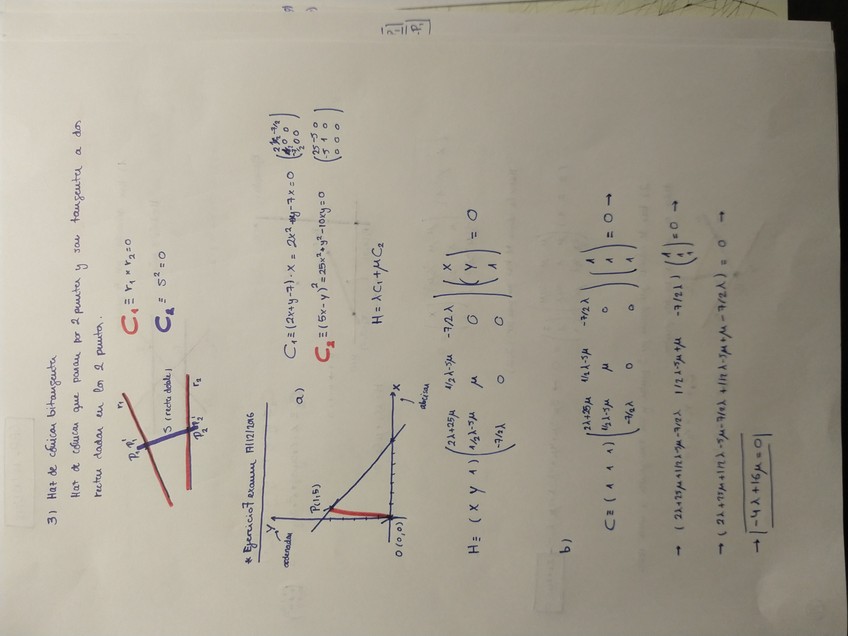 3) Haz de cónicas bitangentes
Haz de cónicas que pasan por 2 puntos y son tangentes a dos
rectas dadas en los 2 puntos.
r₁
P₁ P₁'
S (recta doble)
P₂ P₂'
r₂
C₁ ≡ r₁ × r₂ = 0
C₂ ≡ s² = 0
* Ejercicio 7 examen 17/12/2016
Y
ordenadas
P(1,5)
O (0,0)
X
abcisas
a)
C₁ ≡ (2x+y-7)·x = 2x²+xy-7x = 0
C₂ ≡ (5x-y)² = 25x²+y²-10xy = 0
(25 -5 0
-5 1 0
0 0 0)
H = λC₁+μC₂
H ≡ (x y 1) (2λ+25μ 1/2λ-5μ -7/2λ
1/2λ-5μ μ 0
-7/2λ 0 0) (x
y
1) = 0
b)
C ≡ (1 1 1) (2λ+25μ 1/2λ-5μ -7/2λ
1/2λ-5μ μ 0
-7/2λ 0 0) (1
1
1) = 0 →
→ (2λ+25μ+1/2λ-5μ-7/2λ 1/2λ-5μ+μ -7/2λ) (1
1
1) = 0 →
→ (2λ+25μ+1/2λ-5μ-7/2λ+1/2λ-5μ+μ-7/2λ) = 0 →
→ -4λ+16μ=0